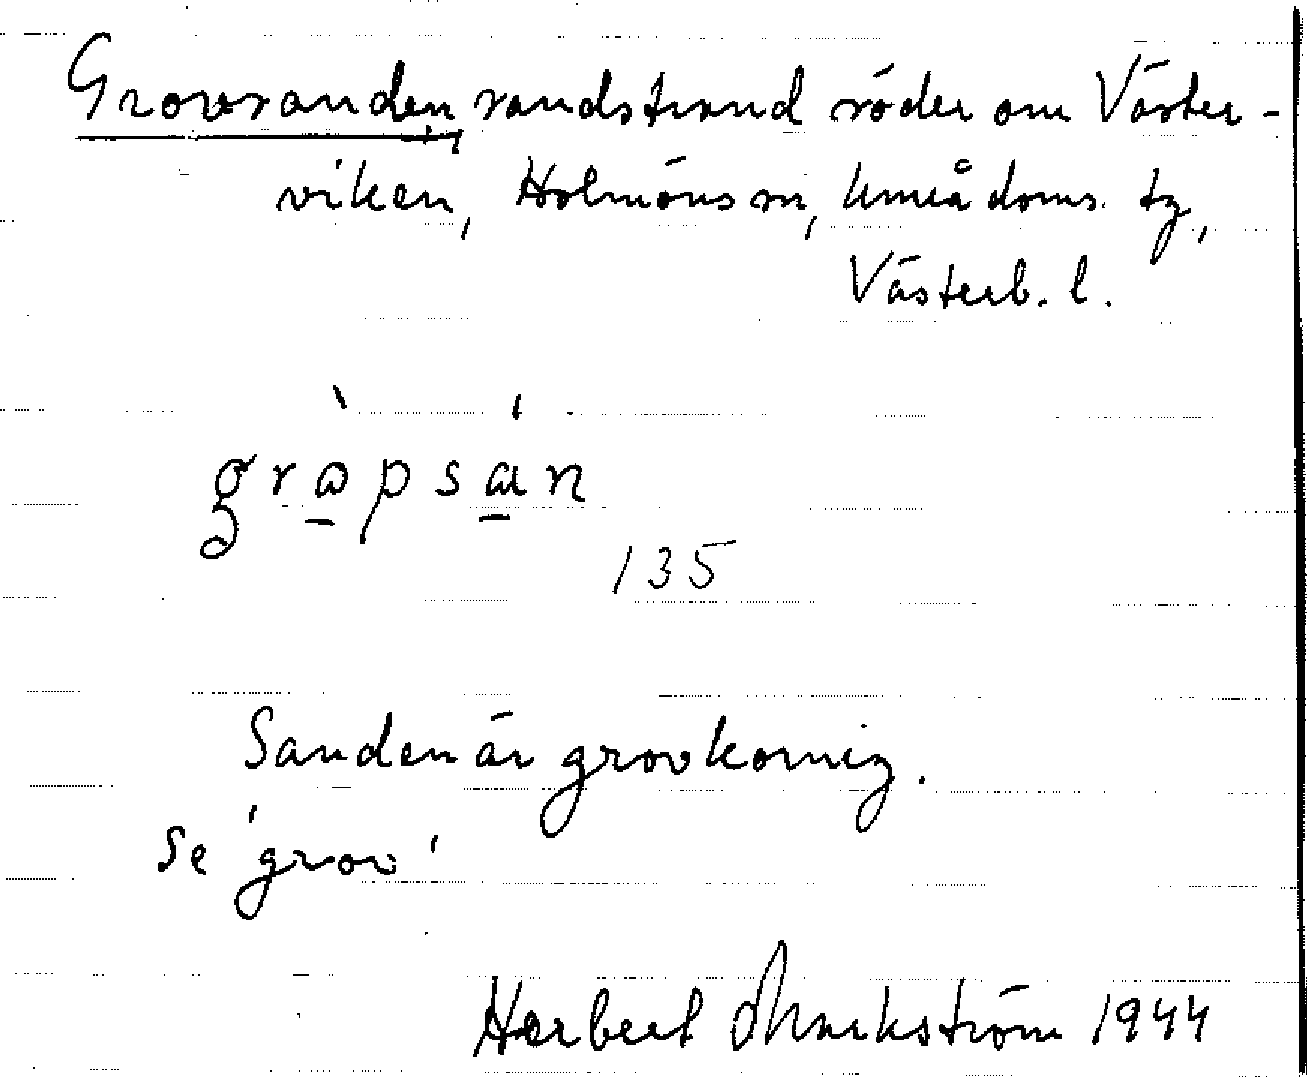 Grovsanden, sandstrand söder om Väster-
viken, Holmöns sn, Umeå doms. tg,
Västerb. l.
gràpsán
135
Sanden är grovkornig.
Se 'grov'
Herbert Markström 1944